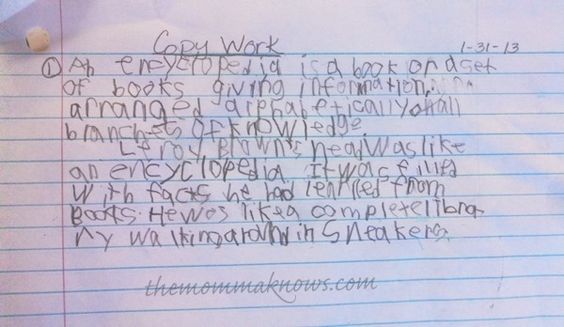 Copy Work
1-31-13
① An encyclopedia is a book or a set
of books giving information,
arranged alphabetically, of all
branches of knowledge.
Leroy Brown's head was like
an encyclopedia. It was filled
with facts he had learned from
Books. He was like a complete libra
ry walking around in Sneakers.
themommaknows.com